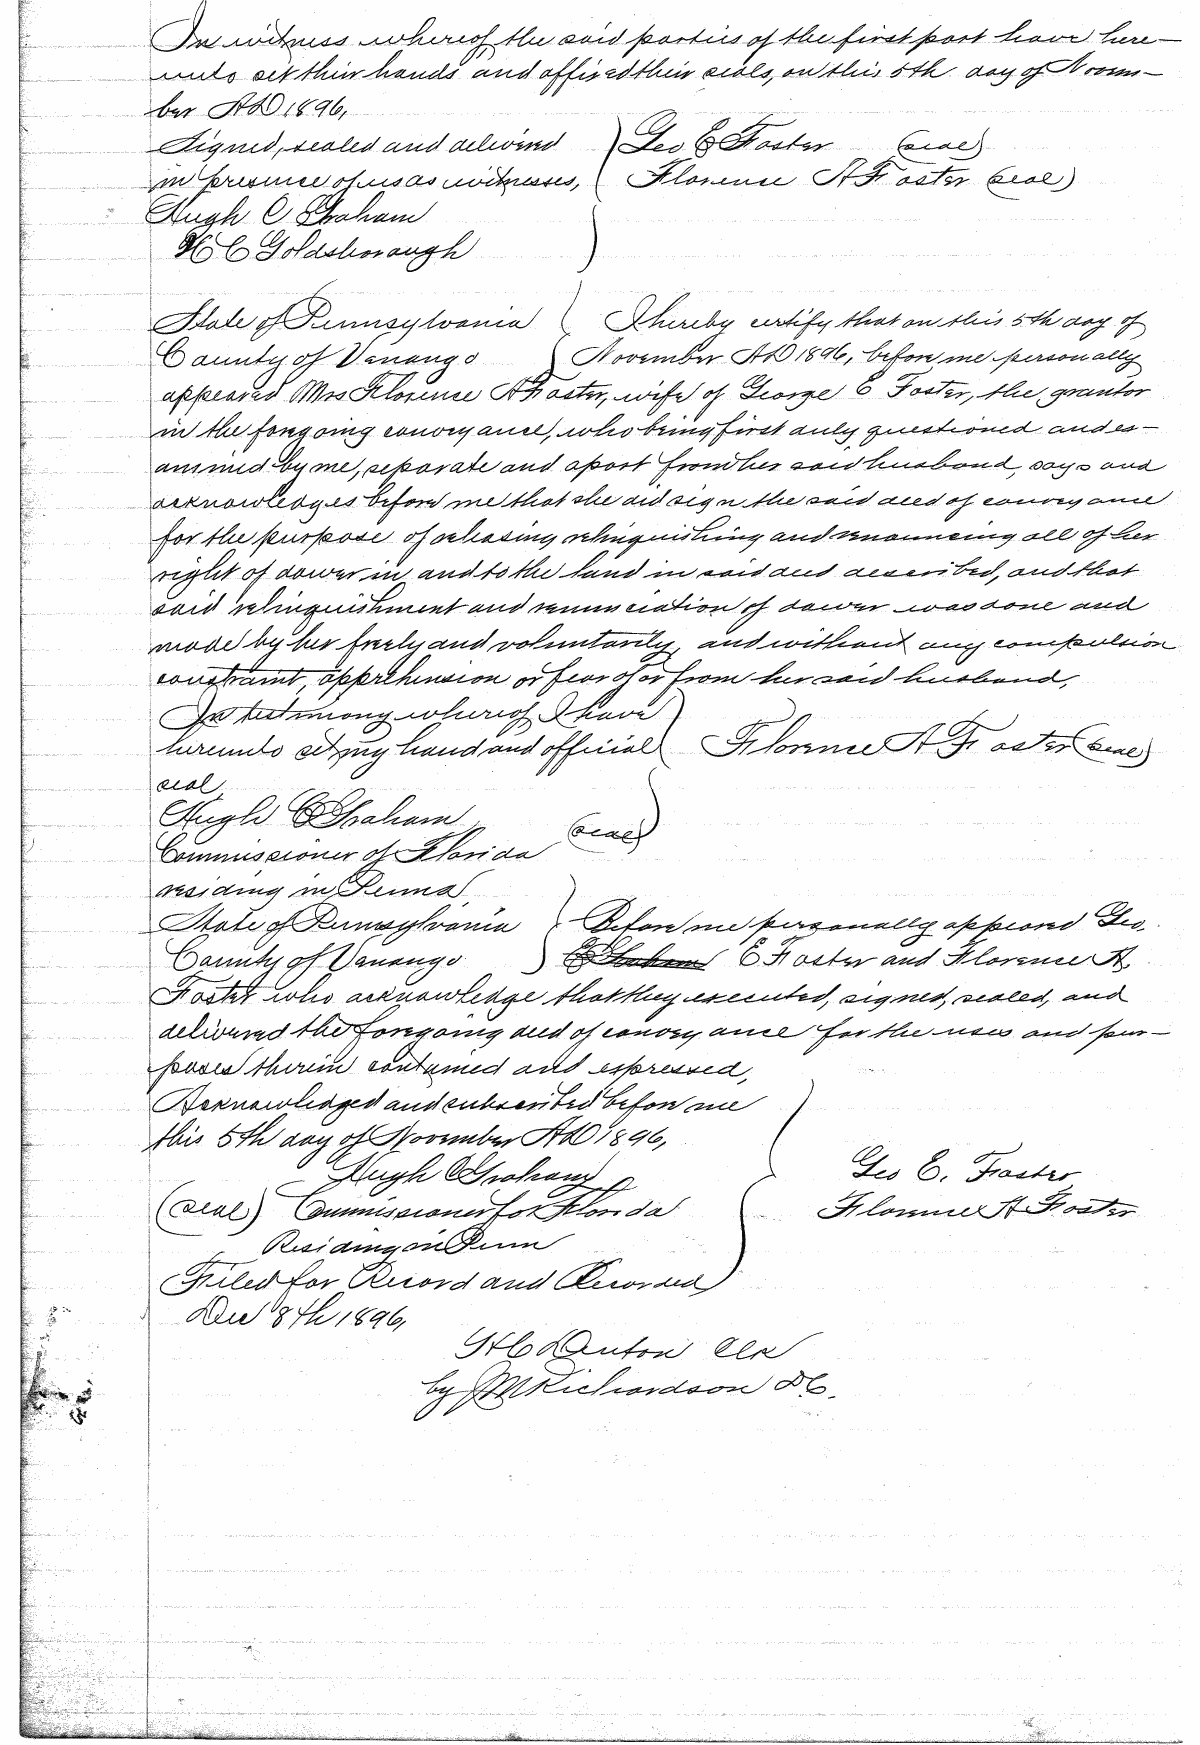 In witness whereof the said parties of the first part have here-
unto set their hands and affixed their seals, on this 5th day of Novem-
ber AD 1896,
Signed, sealed and delivered ) Geo E Foster (seal)
in presence of us as witnesses, ( Florence A Foster (seal)
Hugh C Graham
H C Goldsborough )
State of Pennsylvania ( I hereby certify that on this 5th day of
County of Venango ) November AD 1896, before me personally
appeared Mrs Florence A Foster, wife of George E Foster, the grantor
in the foregoing conveyance, who being first duly questioned and ex-
amined by me, separate and apart from her said husband, says and
acknowledges before me that she did sign the said deed of conveyance
for the purpose of releasing relinquishing and renouncing all of her
right of dower in, and to the land in said deed described, and that
said relinquishment and renunciation of dower was done and
made by her freely and voluntarily, and without any compulsion
constraint, apprehension or fear of or from her said husband,
In testimony whereof I have )
hereunto set my hand and official ( Florence A Foster (seal)
seal,
Hugh C Graham (seal)
Commissioner of Florida
residing in Penna
State of Pennsylvania ) Before me personally appeared Geo.
County of Venango ) E Foster and Florence A
Foster who acknowledge that they executed, signed, sealed, and
delivered the foregoing deed of conveyance for the uses and pur-
poses therein contained and expressed,
Acknowledged and subscribed before me
this 5th day of November AD 1896,
Hugh C Graham Geo E. Foster
(seal) Commissioner for Florida Florence A Foster
Residing in Penn
Filed for Record and Recorded
Dec 8th 1896,
Clk
by Richardson DC.